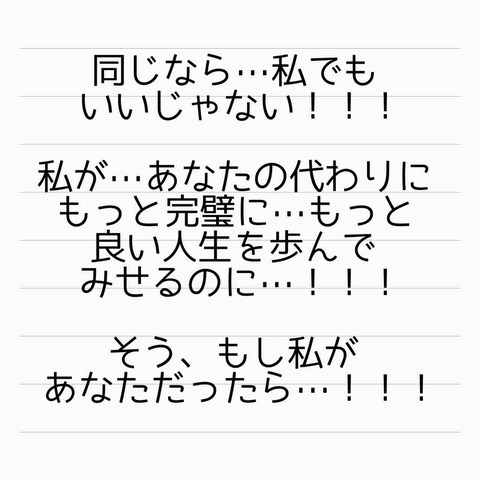 同じなら…私でも
いいじゃない！！！
私が…あなたの代わりに
もっと完璧に…もっと
良い人生を歩んで
みせるのに…！！！
そう、もし私が
あなただったら…！！！